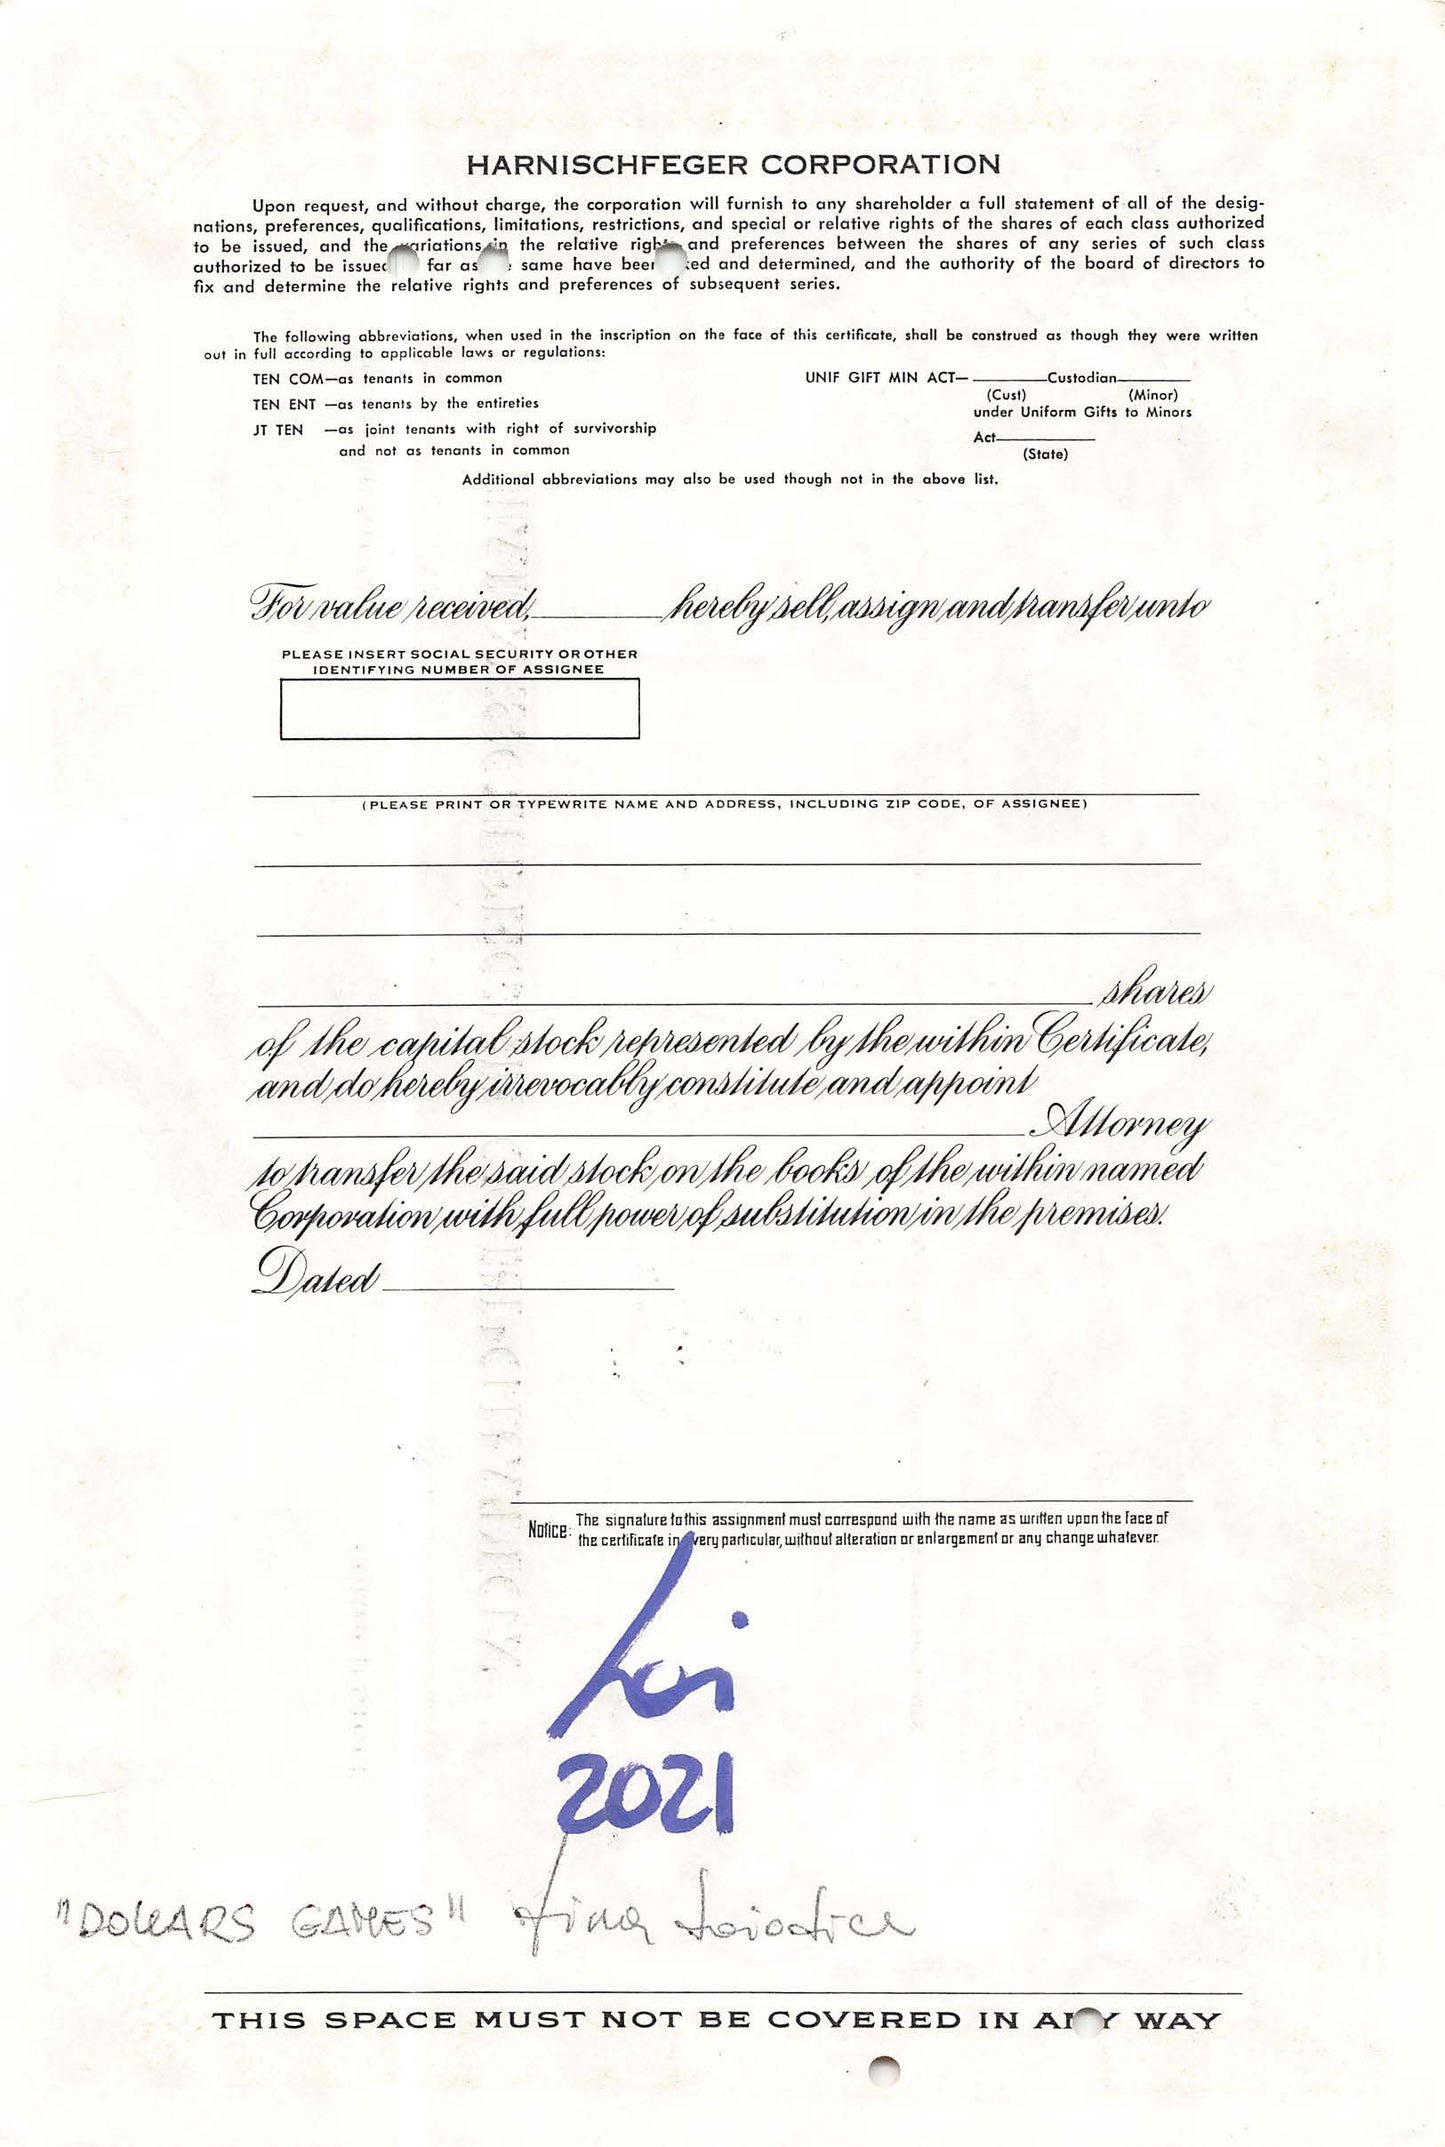 HARNISCHFEGER CORPORATION
Upon request, and without charge, the corporation will furnish to any shareholder a full statement of all of the desig-
nations, preferences, qualifications, limitations, restrictions, and special or relative rights of the shares of each class authorized
to be issued, and the variations in the relative rights and preferences between the shares of any series of such class
authorized to be issued far as same have been and determined, and the authority of the board of directors to
fix and determine the relative rights and preferences of subsequent series.
The following abbreviations, when used in the inscription on the face of this certificate, shall be construed as though they were written
out in full according to applicable laws or regulations:
TEN COM—as tenants in common
TEN ENT —as tenants by the entireties
JT TEN —as joint tenants with right of survivorship
and not as tenants in common
UNIF GIFT MIN ACT—________Custodian________
(Cust) (Minor)
under Uniform Gifts to Minors
Act________
(State)
Additional abbreviations may also be used though not in the above list.
For value received, ________ hereby sell, assign and transfer unto
PLEASE INSERT SOCIAL SECURITY OR OTHER
IDENTIFYING NUMBER OF ASSIGNEE
(PLEASE PRINT OR TYPEWRITE NAME AND ADDRESS, INCLUDING ZIP CODE, OF ASSIGNEE)
________ shares
of the capital stock represented by the within Certificate,
and do hereby irrevocably constitute and appoint
________ Attorney
to transfer the said stock on the books of the within named
Corporation with full power of substitution in the premises.
Dated ________
Notice: The signature to this assignment must correspond with the name as written upon the face of
the certificate in every particular, without alteration or enlargement or any change whatever.
Loi
2021
"DOLLARS GAMES"
THIS SPACE MUST NOT BE COVERED IN ANY WAY